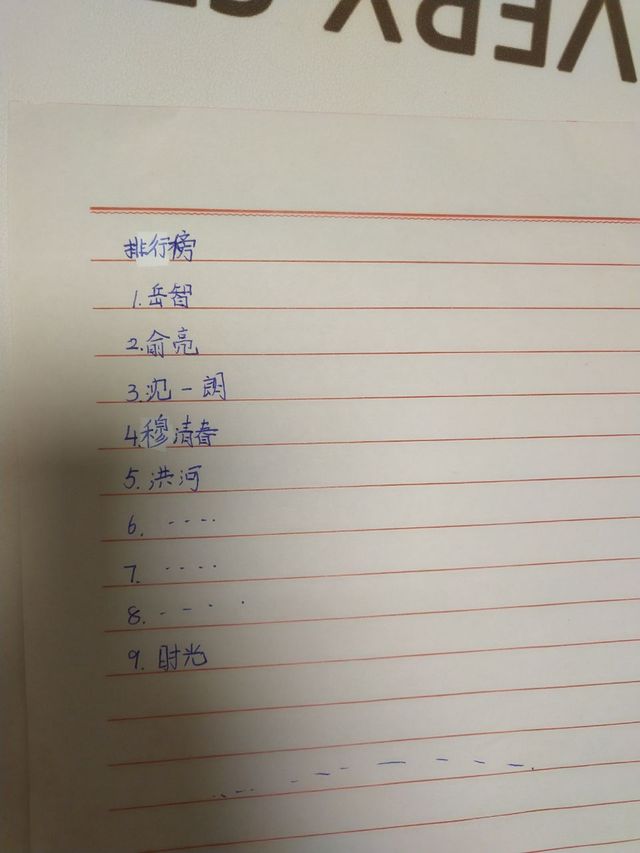 VERY
排行榜
1.岳智
2.俞亮
3.沈一朗
4.穆清春
5.洪河
6. ....
7. ....
8. ....
9. 时光